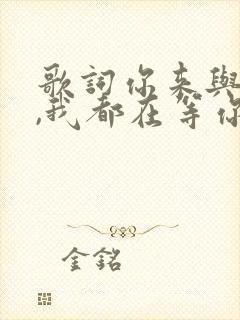 歌詞你来與
,我都在等你
金銘